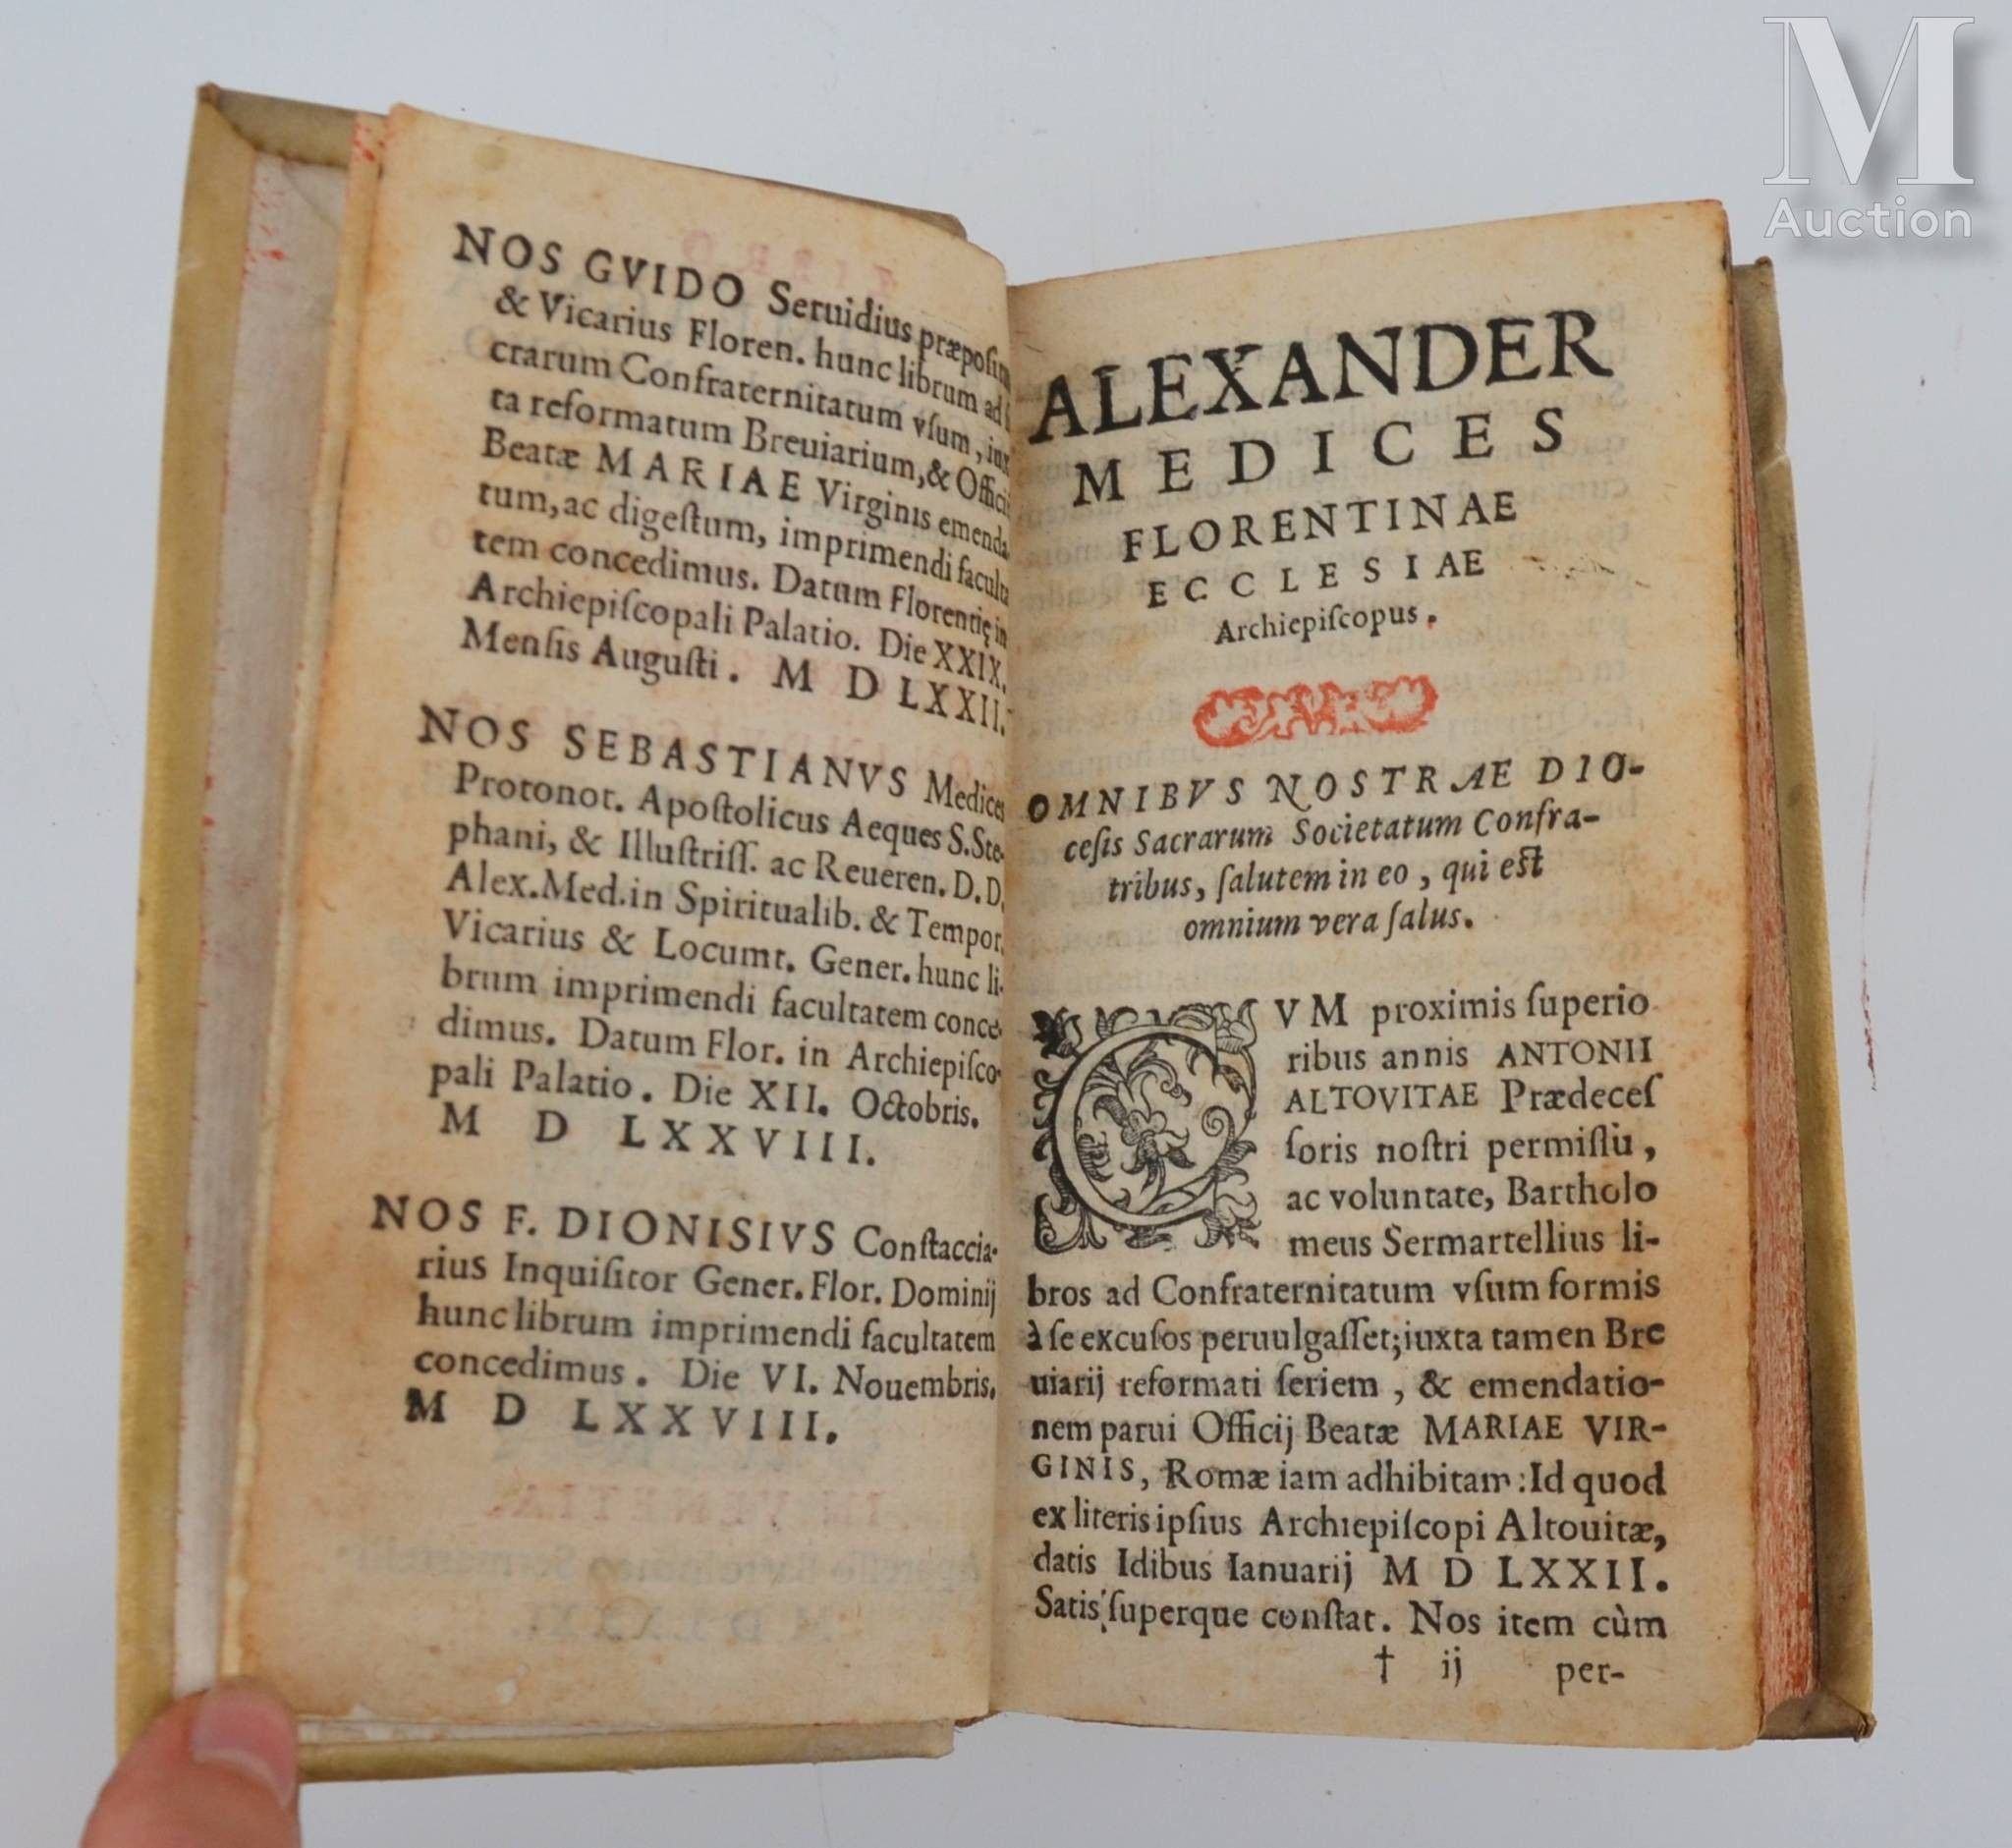 NOS GVIDO Seruidius præpoſitu
& Vicarius Floren. hunc librum ad
crarum Confraternitatum vſum, iux
ta reformatum Breuiarium, & Offici
Beatæ MARIAE Virginis emenda
tum, ac digeſtum, imprimendi faculta
tem concedimus. Datum Florentię in
Archiepiſcopali Palatio. Die XXIX.
Menſis Auguſti. M D LXXII.
NOS SEBASTIANVS Medices
Protonot. Apoſtolicus Aeques S. Ste-
phani, & Illuſtriſſ. ac Reueren. D. D.
Alex. Med. in Spiritualib. & Tempor.
Vicarius & Locumt. Gener. hunc li-
brum imprimendi facultatem conce-
dimus. Datum Flor. in Archiepiſco-
pali Palatio. Die XII. Octobris.
M D LXXVIII.
NOS F. DIONISIVS Conſtaccia-
rius Inquiſitor Gener. Flor. Dominij
hunc librum imprimendi facultatem
concedimus. Die VI. Nouembris.
M D LXXVIII.
ALEXANDER
MEDICES
FLORENTINAE
ECCLESIAE
Archiepiſcopus.
OMNIBVS NOSTRAE DIO-
ceſis Sacrarum Societatum Confra-
tribus, ſalutem in eo, qui est
omnium vera ſalus.
CVM proximis ſuperio
ribus annis ANTONII
ALTOVITAE Prædeceſ
ſoris noſtri permiſſù,
ac voluntate, Bartholo
meus Sermartellius li-
bros ad Confraternitatum vſum formis
à ſe excuſos peruulgaſſet; iuxta tamen Bre
uiarij reformati ſeriem, & emendatio-
nem parui Officij Beatæ MARIAE VIR-
GINIS, Romæ iam adhibitam: Id quod
ex literis ipſius Archiepiſcopi Altouitæ,
datis Idibus Ianuarij M D LXXII.
Satis ſuperque conſtat. Nos item cùm
† ij per-
M
Auction